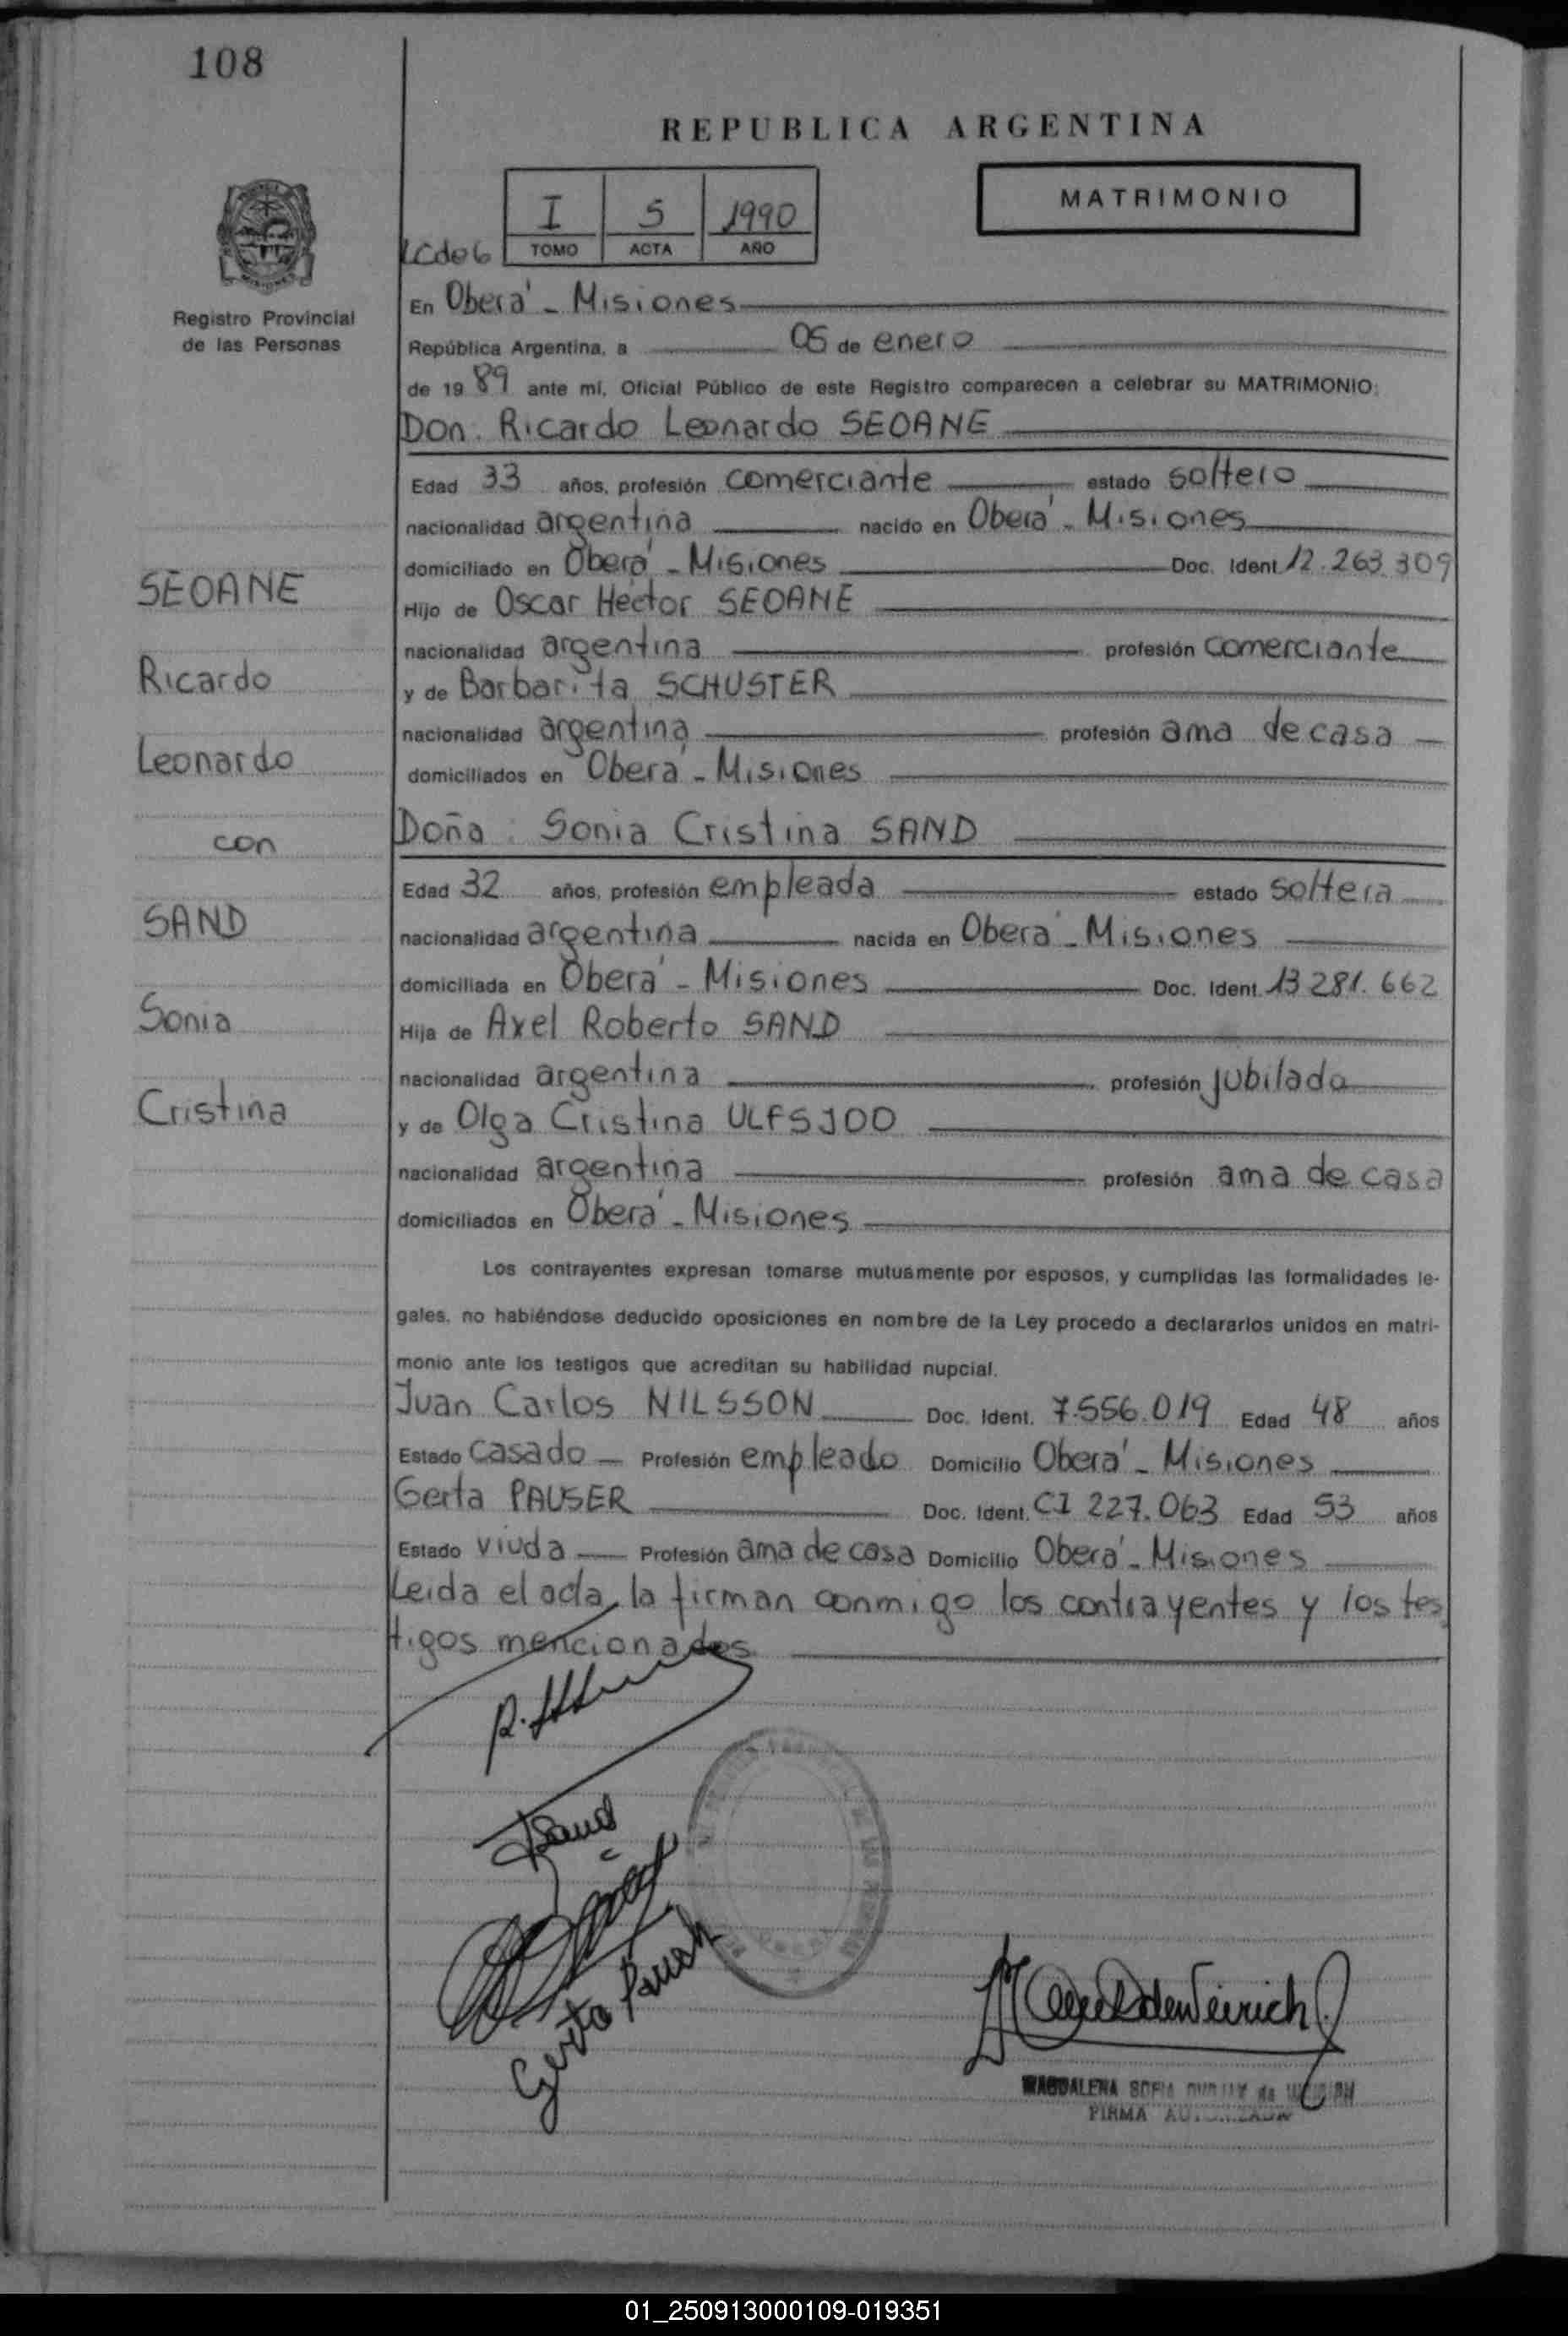 108
REPUBLICA ARGENTINA
MATRIMONIO
I 5 1990
TOMO ACTA AÑO
LCde6
Registro Provincial
de las Personas
En Oberá - Misiones
República Argentina, a 05 de enero
de 1989 ante mí, Oficial Público de este Registro comparecen a celebrar su MATRIMONIO:
Don. Ricardo Leonardo SEOANE
Edad 33 años, profesión comerciante estado soltero
nacionalidad argentina nacido en Oberá - Misiones
domiciliado en Oberá - Misiones Doc. Ident. 12.263.309
Hijo de Oscar Hector SEOANE
nacionalidad argentina profesión comerciante
y de Barbarita SCHUSTER
nacionalidad argentina profesión ama de casa
domiciliados en Oberá - Misiones
Doña: Sonia Cristina SAND
Edad 32 años, profesión empleada estado soltera
nacionalidad argentina nacida en Oberá - Misiones
domiciliada en Oberá - Misiones Doc. Ident. 13 281.662
Hija de Axel Roberto SAND
nacionalidad argentina profesión jubilado
y de Olga Cristina ULFSJOO
nacionalidad argentina profesión ama de casa
domiciliados en Oberá - Misiones
SEOANE
Ricardo
Leonardo
con
SAND
Sonia
Cristina
Los contrayentes expresan tomarse mutuamente por esposos, y cumplidas las formalidades le-
gales, no habiéndose deducido oposiciones en nombre de la Ley procedo a declararlos unidos en matri-
monio ante los testigos que acreditan su habilidad nupcial.
Juan Carlos NILSSON Doc. Ident. 7.556.019 Edad 48 años
Estado casado Profesión empleado Domicilio Oberá - Misiones
Gerta PAUSER Doc. Ident. CI 227.063 Edad 53 años
Estado viuda Profesión ama de casa Domicilio Oberá - Misiones
Leida el acta, la firman conmigo los contrayentes y los tes
tigos mencionados
Sand
Gerta
MAGDALENA SOFIA de
FIRMA AUTORIZADA
01_250913000109-019351